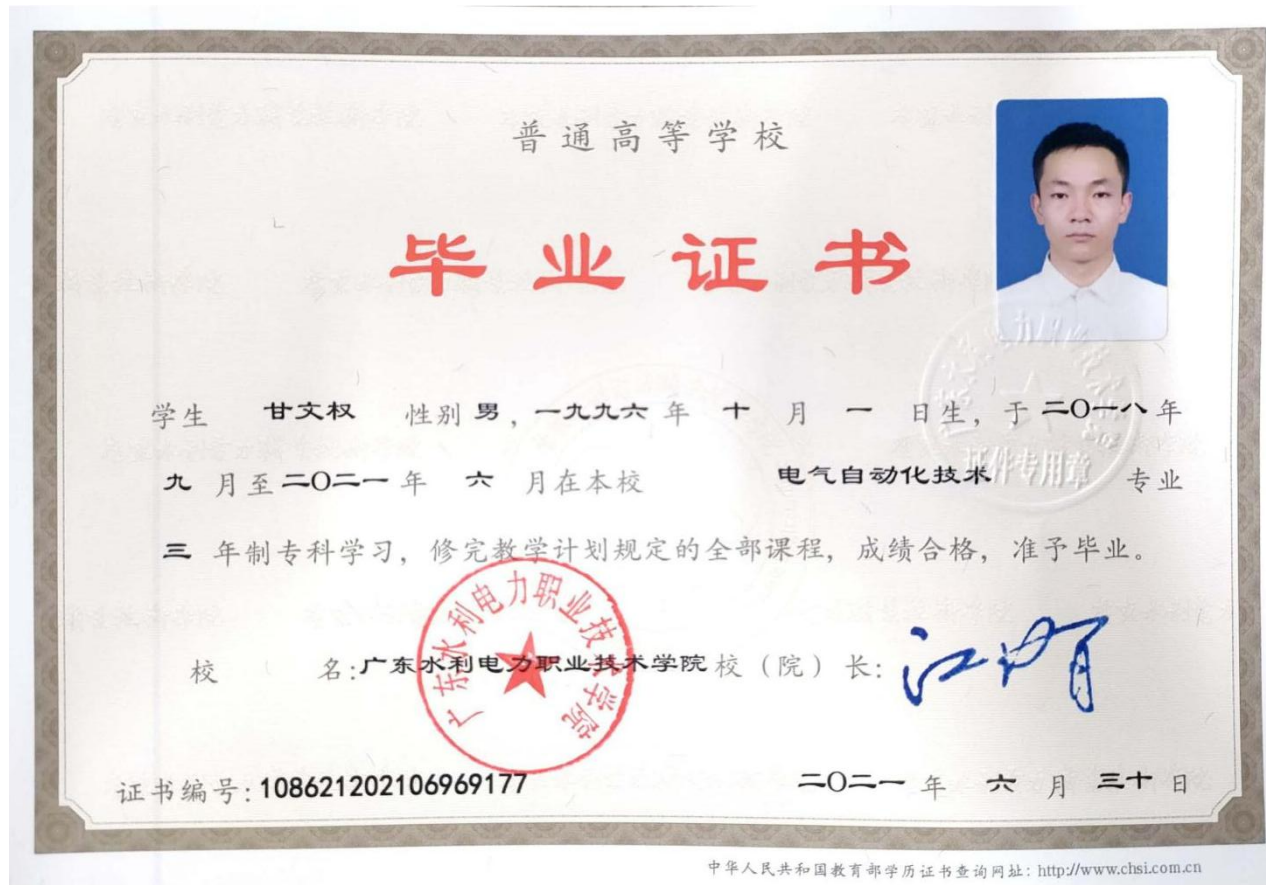 普通高等学校
毕业证书
学生 甘文权 性别 男，一九九六 年 十 月 一 日生，于 二〇一八 年
九 月至 二〇二一 年 六 月在本校 电气自动化技术 专业
三 年制专科学习，修完教学计划规定的全部课程，成绩合格，准予毕业。
校 名:广东水利电力职业技术学院 校（院）长:
广东水利电力职业技术学院
证件专用章
证书编号: 108621202106969177 二〇二一 年 六 月 三十 日
中华人民共和国教育部学历证书查询网址: http://www.chsi.com.cn